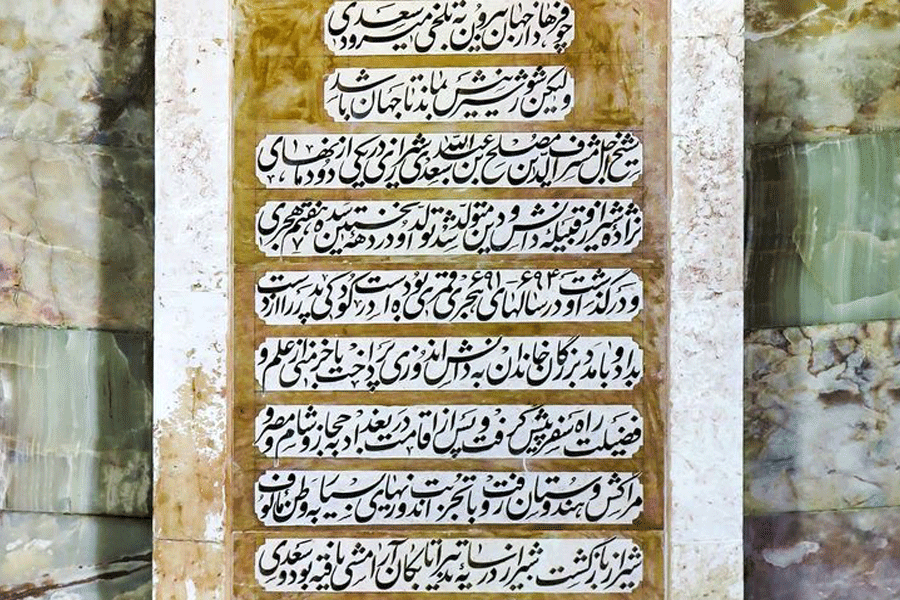 چو فرهاد از جهان بیرون به تلخی میرود سعدی
ولیکن شور شیرینش بماند تا جهان باشد
شیخ اجل مشرف الدین مصلح بن عبدالله سعدی شیرازی در یکی از دودمانهای
نژاده شیراز و قبیله دانش و دین متولد شد تولد او در دهه نخستین سده هفتم هجری
و درگذشت او در سالهای ۶۹۱ ۶۹۴ هجری قمری بوده است در کودکی پدر را از دست
بداد و با مدد بزرگان خاندان به دانش اندوزی پرداخت با خرمنی از علم و
فضیلت راه سفر پیش گرفت و پس از اقامت در بغداد حجاز و شام و مصر و
مراکش هندوستان رفت و با تجربت اندوزیهای بسیار به وطن مألوف
شیراز بازگشت شیراز در سایه تدبیر اتابکان آرامشی یافته بود و سعدی